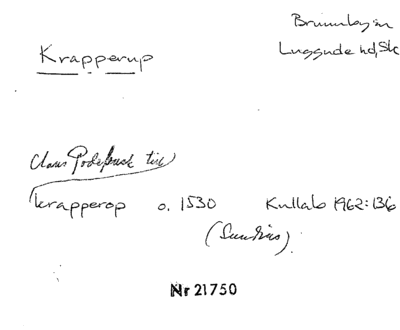 Krapperup
Brunnby sn
Luggude hd, Sk
Claus Podebusk till
Krapperop o. 1530 Kullabo 1962:136
Nr 21750